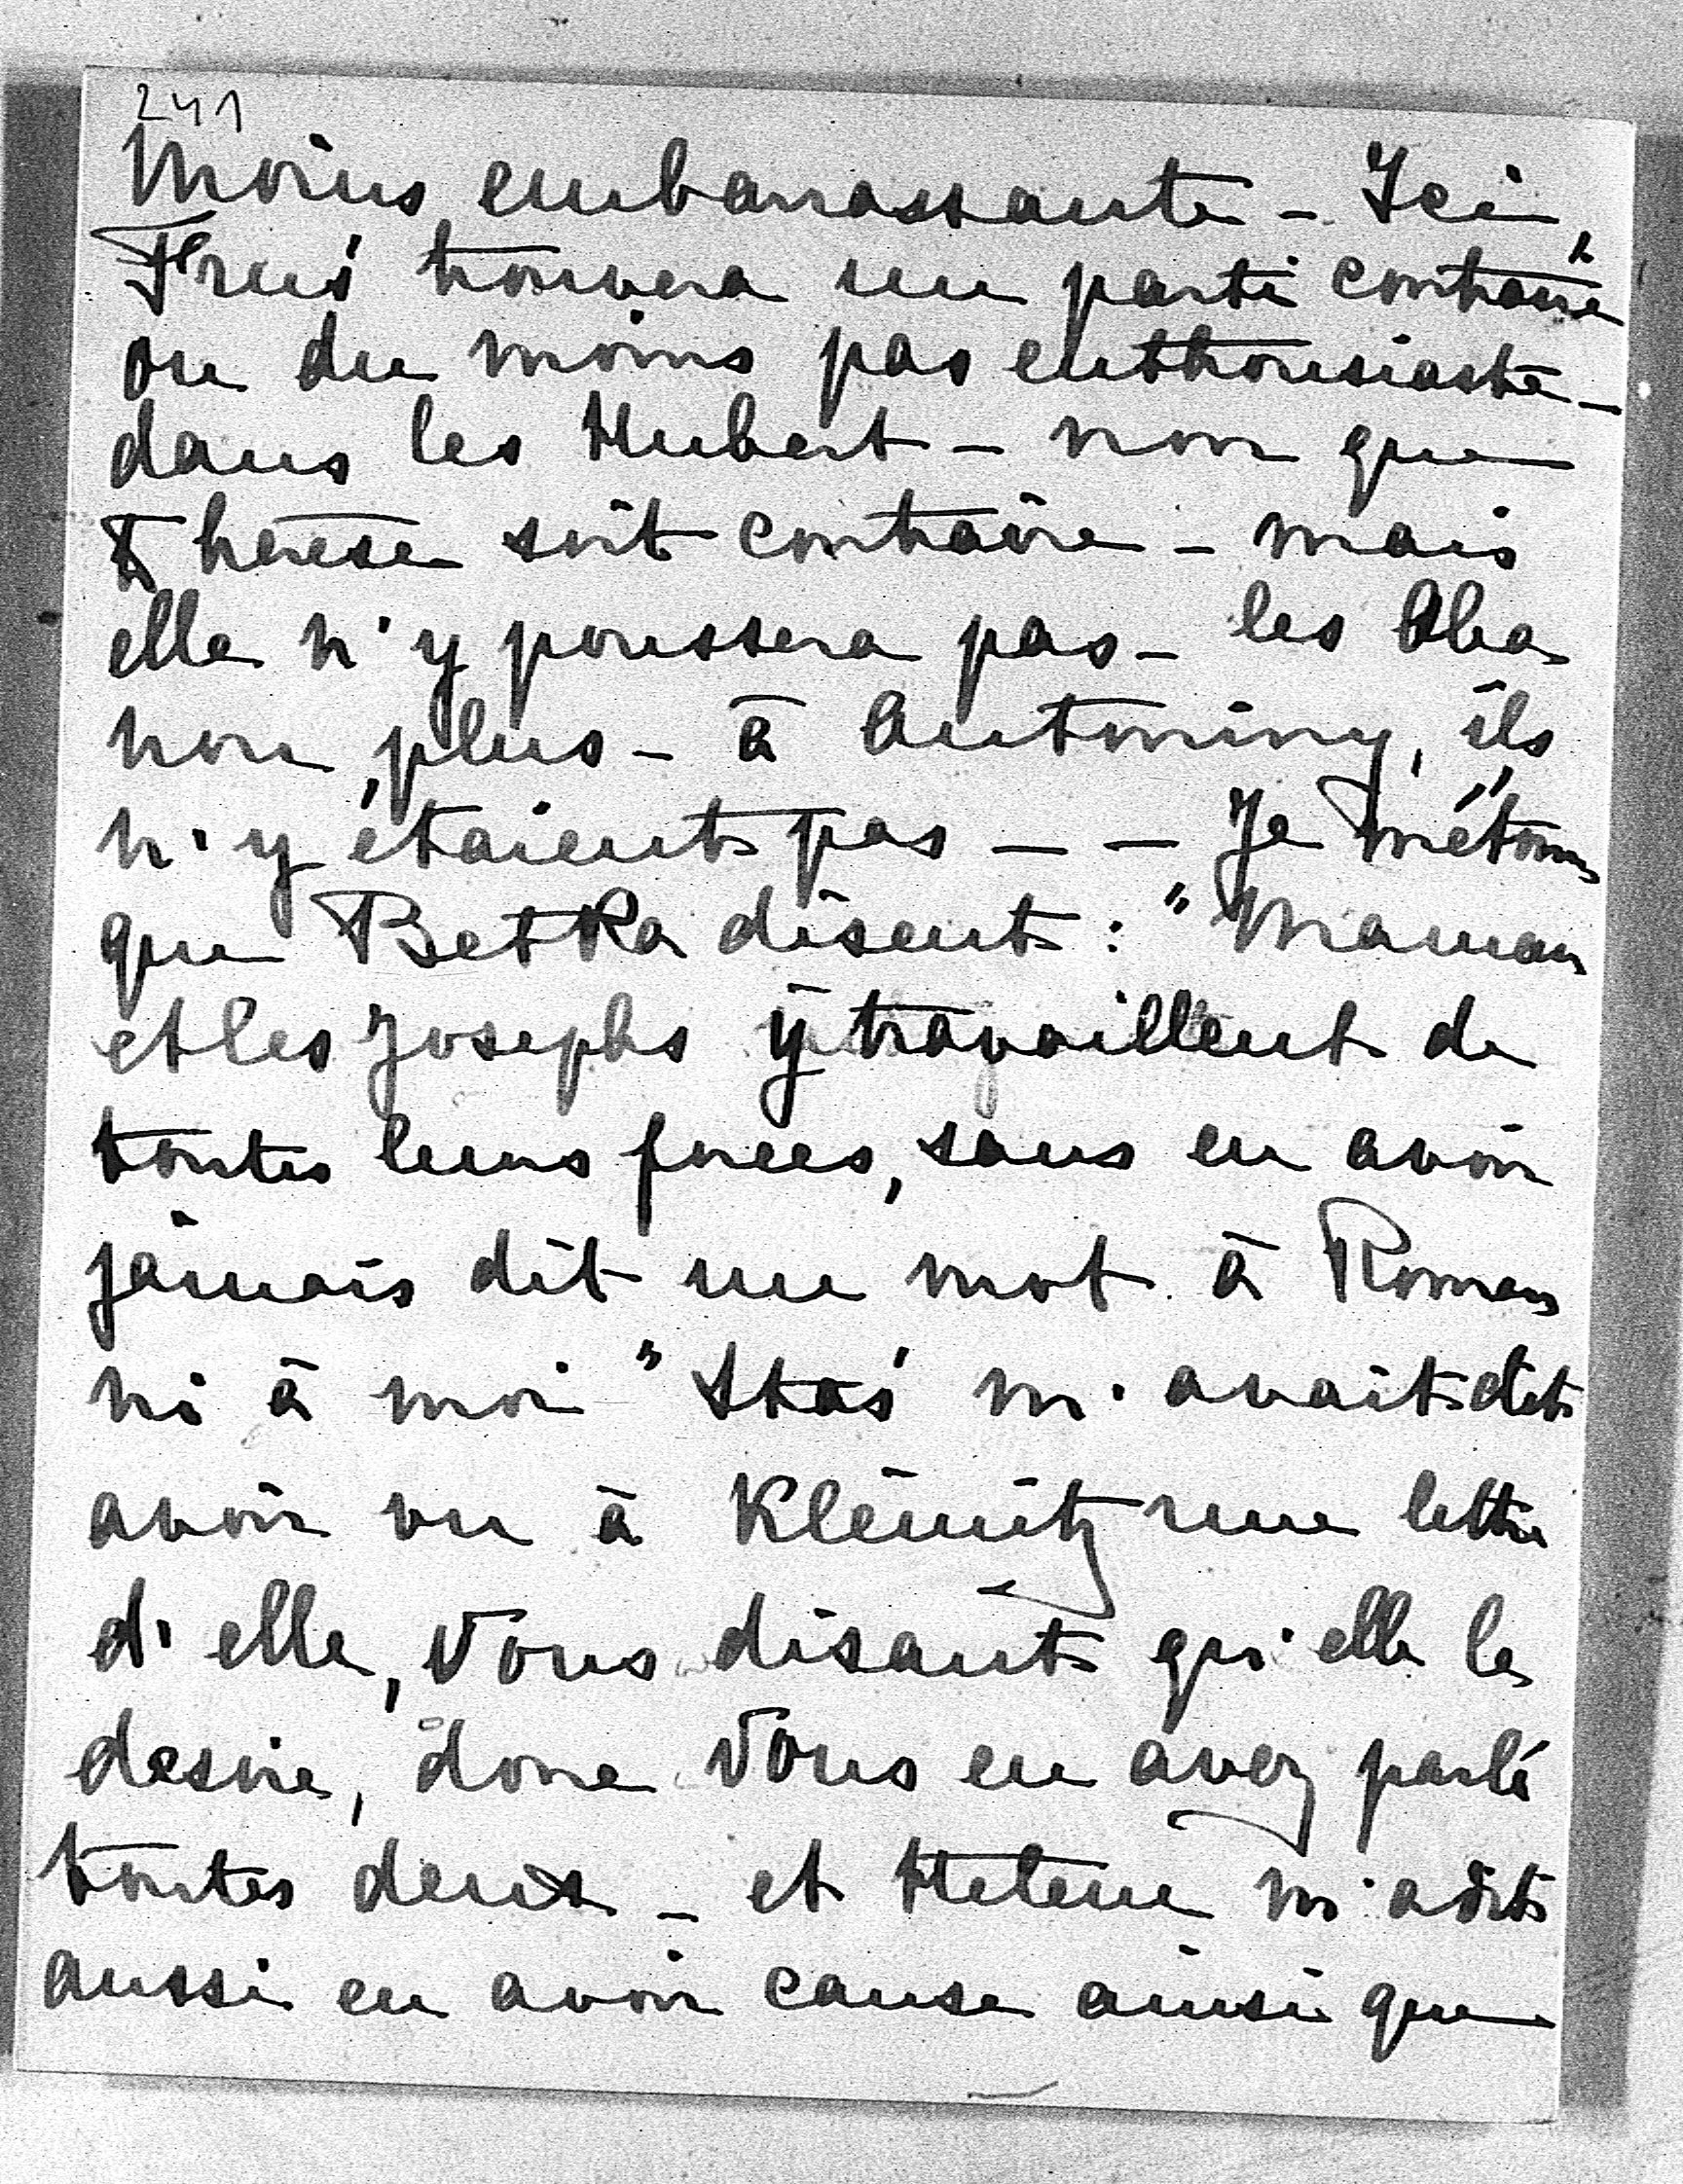 241
Moins embarrassante - Ici,
trouvera un parti contraire
ou du moins pas enthousiaste -
dans les Hubert - non que
Therese soit contraire - mais
elle n'y poussera pas - les Alba
non plus - à Antoniny, ils
n'y étaient pas - - Je m'étonne
que Betka disent : "Maman
et les Josephs y travaillent de
toutes leurs forces, sans en avoir
jamais dit un mot à Roman
ni à moi" Staś m'avait dit
avoir vu à Klémitz une lettre
d'elle, Vous disant qu'elle le
desire, donc Vous en avez parlé
toutes deux - et Helene m'a dit
aussi en avoir cause ainsi que